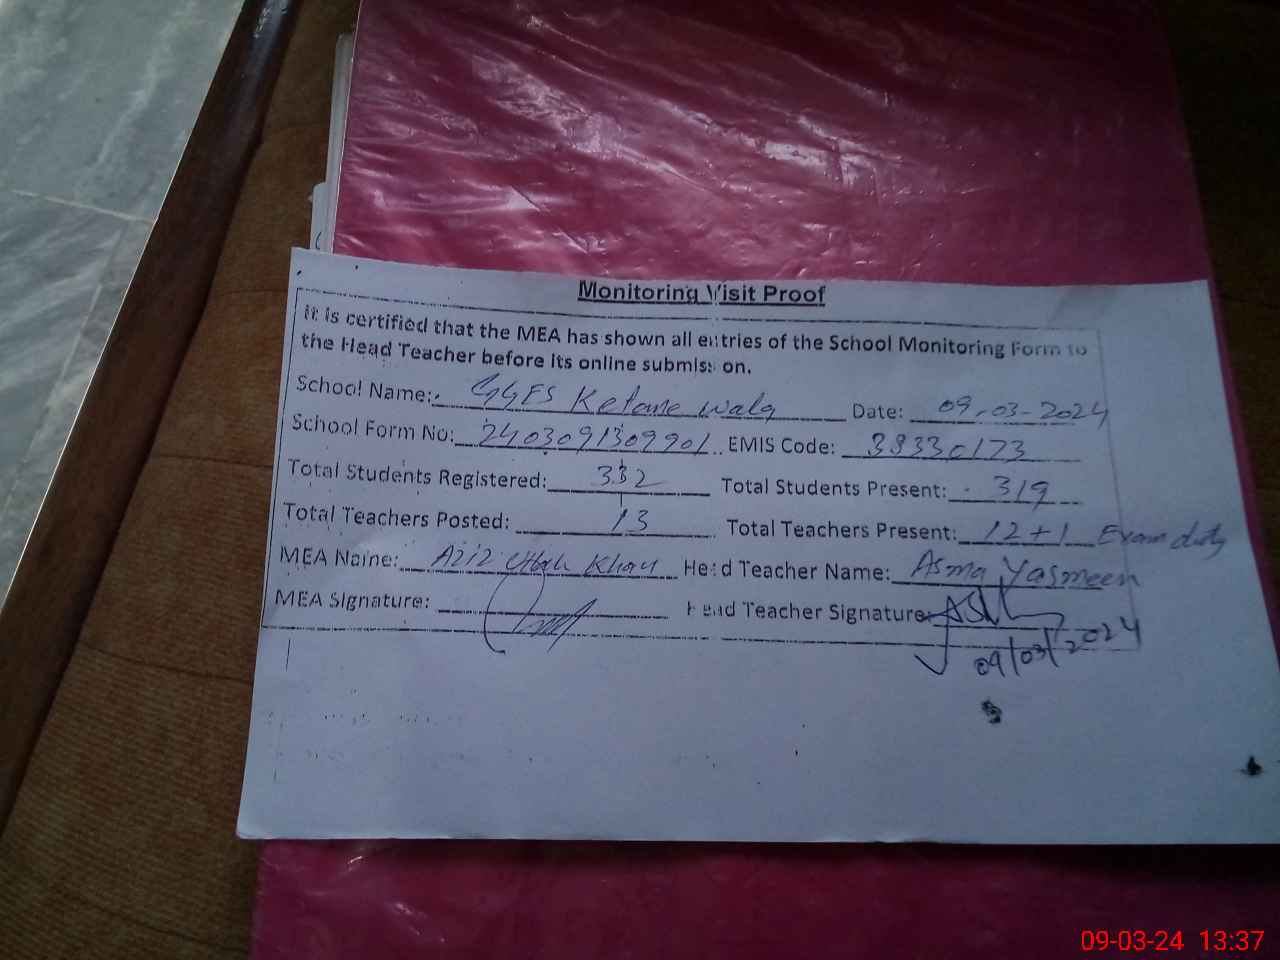 Monitoring Visit Proof
It is certified that the MEA has shown all entries of the School Monitoring Form to
the Head Teacher before its online submission.
School Name: GGES Ketane wala Date: 09-03-2024
School Form No: 2403091309901 EMIS Code: 38330173
Total Students Registered: 332 Total Students Present: 319
Total Teachers Posted: 13 Total Teachers Present: 12+1 Exam duty
MEA Name: Aziz Ullah Khan Head Teacher Name: Asma Yasmeen
MEA Signature: Head Teacher Signature:
09/03/2024
09-03-24 13:37